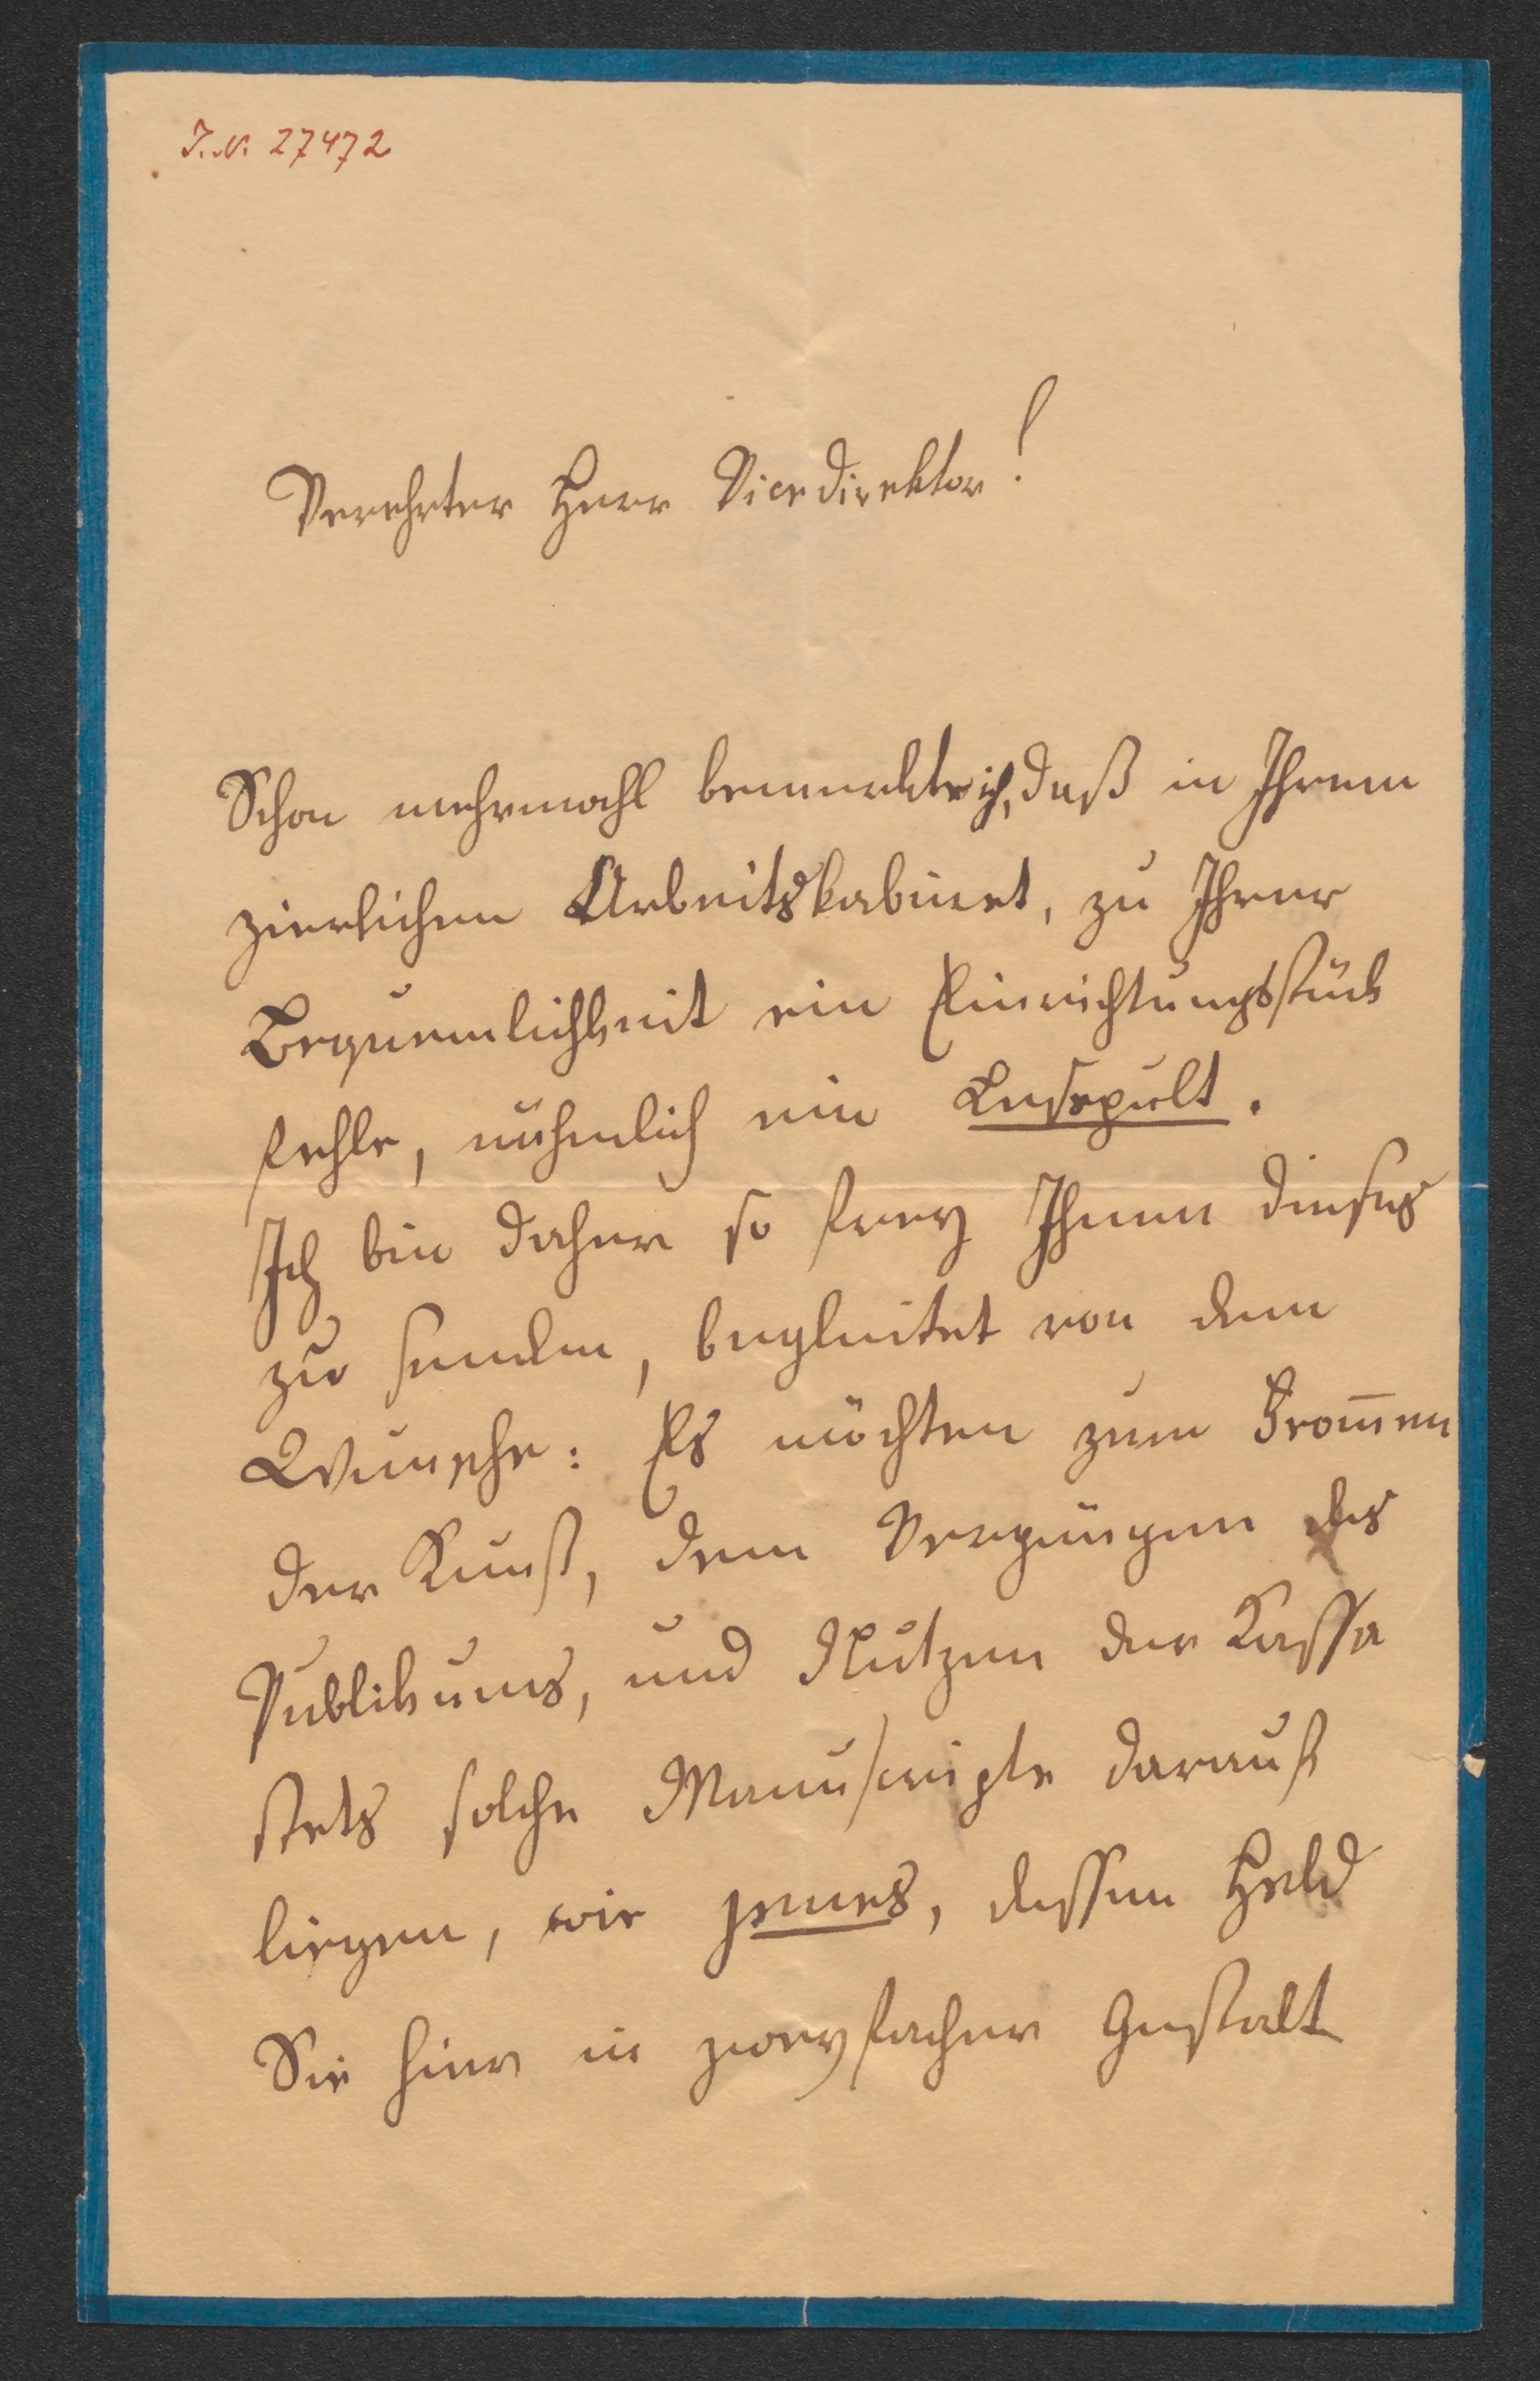 I.N. 27472
Verehrter Herr Vicedirektor!
Schon mehrmahl bemerkte ich, daß in Ihrem
zierlichen Arbeitskabinet, zu Ihrer
Bequemlichkeit ein Einrichtungsstück
fehle, nähmlich ein Lesepult.
Ich bin daher so frey Ihnen dieses
zu senden, begleitet von dem
Wunsche: Es möchten zum From̅en
der Kunst, dem Vergnügen des
Publikums, und Nutzen der Kassa
stets solche Manuscripte darauf
liegen, wie jenes, dessen Held
Sie hier in zweyfacher Gestalt